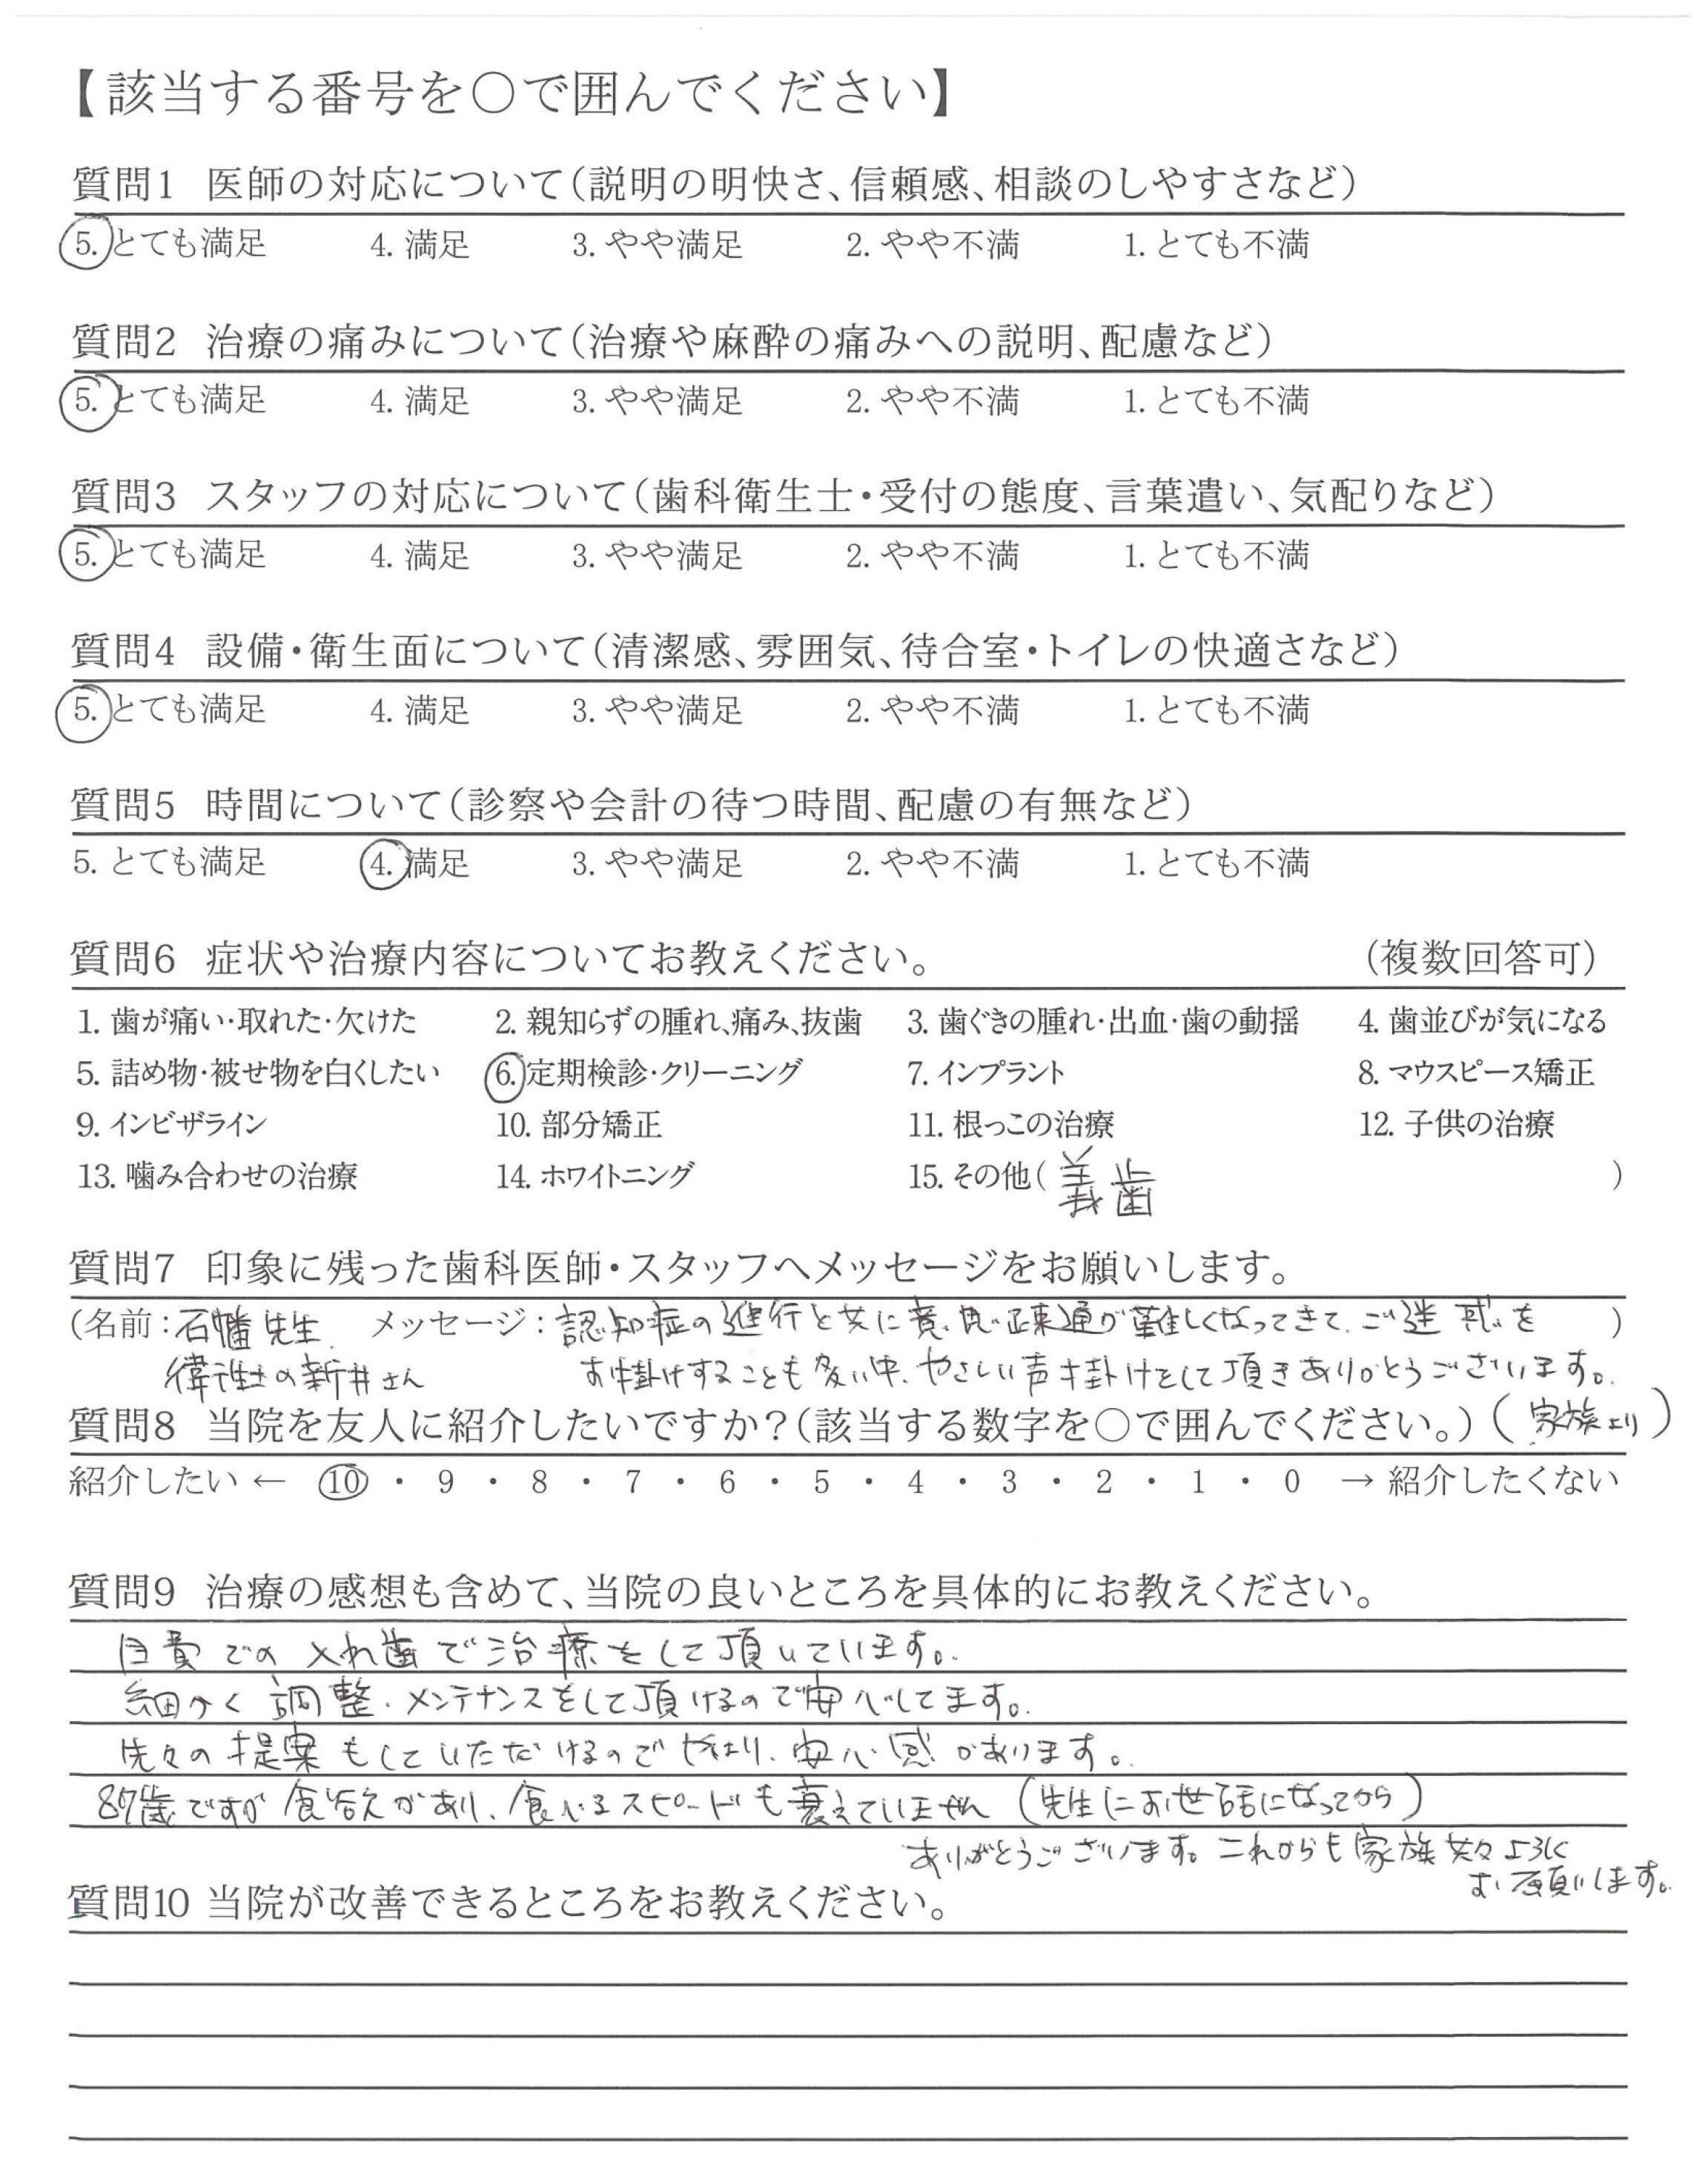 【該当する番号を○で囲んでください】
質問1 医師の対応について（説明の明快さ、信頼感、相談のしやすさなど）
5. とても満足 4. 満足 3. やや満足 2. やや不満 1. とても不満
質問2 治療の痛みについて（治療や麻酔の痛みへの説明、配慮など）
5. とても満足 4. 満足 3. やや満足 2. やや不満 1. とても不満
質問3 スタッフの対応について（歯科衛生士・受付の態度、言葉遣い、気配りなど）
5. とても満足 4. 満足 3. やや満足 2. やや不満 1. とても不満
質問4 設備・衛生面について（清潔感、雰囲気、待合室・トイレの快適さなど）
5. とても満足 4. 満足 3. やや満足 2. やや不満 1. とても不満
質問5 時間について（診察や会計の待つ時間、配慮の有無など）
5. とても満足 4. 満足 3. やや満足 2. やや不満 1. とても不満
質問6 症状や治療内容についてお教えください。 （複数回答可）
1. 歯が痛い・取れた・欠けた 2. 親知らずの腫れ、痛み、抜歯 3. 歯ぐきの腫れ・出血・歯の動揺 4. 歯並びが気になる
5. 詰め物・被せ物を白くしたい 6. 定期検診・クリーニング 7. インプラント 8. マウスピース矯正
9. インビザライン 10. 部分矯正 11. 根っこの治療 12. 子供の治療
13. 噛み合わせの治療 14. ホワイトニング 15. その他（ 義歯 ）
質問7 印象に残った歯科医師・スタッフへメッセージをお願いします。
（名前：石幡先生 メッセージ：認知症の進行と共に意思疎通が難しくなってきて、ご迷惑を ）
衛生士の新井さん お掛けすることも多い中、やさしい声掛けをして頂きありがとうございます。
質問8 当院を友人に紹介したいですか？（該当する数字を○で囲んでください。）（家族より）
紹介したい ← 10 ・ 9 ・ 8 ・ 7 ・ 6 ・ 5 ・ 4 ・ 3 ・ 2 ・ 1 ・ 0 → 紹介したくない
質問9 治療の感想も含めて、当院の良いところを具体的にお教えください。
自費での入れ歯で治療をして頂いています。
細かく調整、メンテナンスをして頂けるので安心してます。
先々の提案もしていただけるのでやはり、安心感があります。
87歳ですが食答えがあり、食べるスピードも衰えていません（先生にお世話になってから）
ありがとうございます。これからも家族共々よろしく
お願いします。
質問10 当院が改善できるところをお教えください。